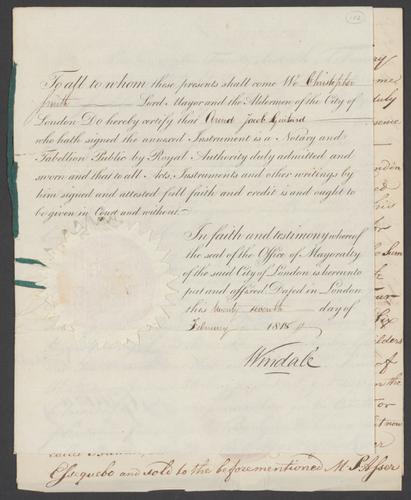 To all to whom these presents shall come We Christopher
Smith Lord Mayor and the Aldermen of the City of
London Do hereby certify that Arend Jacob Guitard
who hath signed the annexed Instrument is a Notary and
Tabellion Public by Royal Authority duly admitted and
sworn and that to all Acts, Instruments and other writings by
him signed and attested full faith and credit is and ought to
be given in Court and without.
In faith and testimony whereof
the seal of the Office of Mayoralty
of the said City of London is hereunto
put and affixed. Dated in London
this twenty seventh day of
February 1818
Windale
Essequebo and sold to the beforementioned M. P. Asser